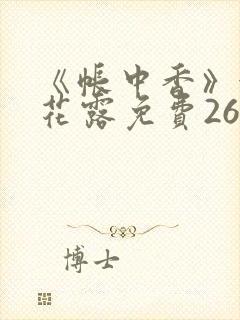 《帐中香》
花露免费26
博士